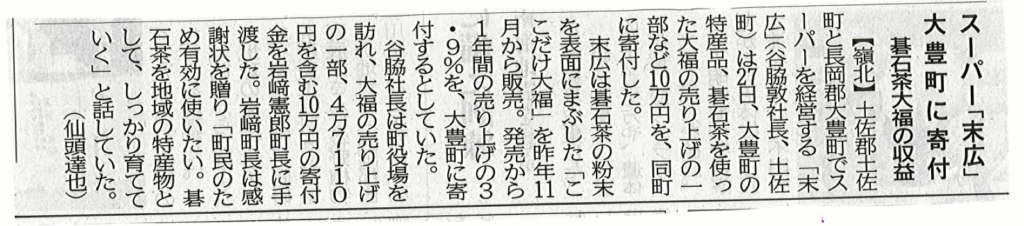 スーパー「末広」
大豊町に寄付
碁石茶大福の収益
【嶺北】土佐郡土佐
町と長岡郡大豊町でス
ーパーを経営する「末
広」(谷脇敦社長、土佐
町)は27日、大豊町の
特産品、碁石茶を使っ
た大福の売り上げの一
部など10万円を、同町
に寄付した。
末広は碁石茶の粉末
を表面にまぶした「こ
こだけ大福」を昨年11
月から販売。発売から
1年間の売り上げの3
・9%を、大豊町に寄
付するとしていた。
谷脇社長は町役場を
訪れ、大福の売り上げ
の一部、4万7110
円を含む10万円の寄付
金を岩﨑憲郎町長に手
渡した。岩﨑町長は感
謝状を贈り「町民のた
め有効に使いたい。碁
石茶を地域の特産物と
して、しっかり育てて
いく」と話していた。
(仙頭達也)